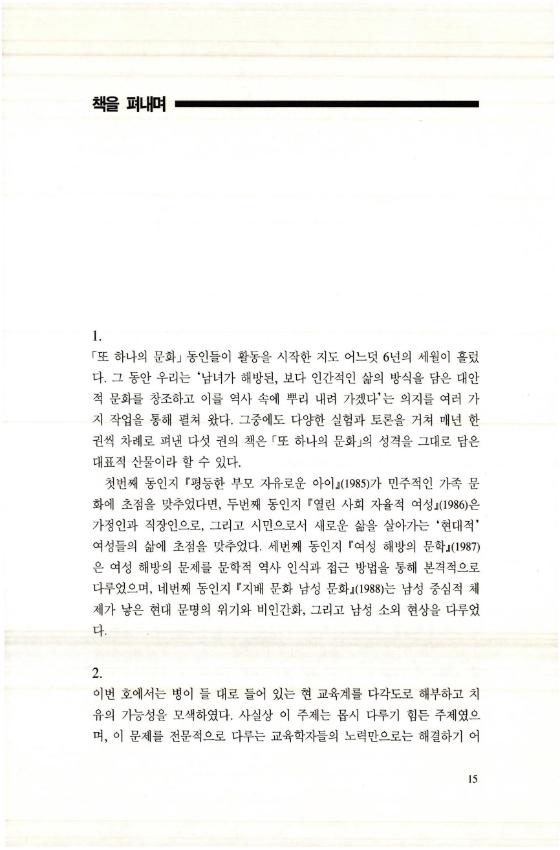 책을 펴내며
1.
「또 하나의 문화」 동인들이 활동을 시작한 지도 어느덧 6년의 세월이 흘렀
다. 그 동안 우리는 '남녀가 해방된, 보다 인간적인 삶의 방식을 담은 대안
적 문화를 창조하고 이를 역사 속에 뿌리 내려 가겠다'는 의지를 여러 가
지 작업을 통해 펼쳐 왔다. 그중에도 다양한 실험과 토론을 거쳐 매년 한
권씩 차례로 펴낸 다섯 권의 책은 「또 하나의 문화」의 성격을 그대로 담은
대표적 산물이라 할 수 있다.
첫번째 동인지 『평등한 부모 자유로운 아이』(1985)가 민주적인 가족 문
화에 초점을 맞추었다면, 두번째 동인지 『열린 사회 자율적 여성』(1986)은
가정인과 직장인으로, 그리고 시민으로서 새로운 삶을 살아가는 '현대적'
여성들의 삶에 초점을 맞추었다. 세번째 동인지 『여성 해방의 문학』(1987)
은 여성 해방의 문제를 문학적 역사 인식과 접근 방법을 통해 본격적으로
다루었으며, 네번째 동인지 『지배 문화 남성 문화』(1988)는 남성 중심적 체
제가 낳은 현대 문명의 위기와 비인간화, 그리고 남성 소외 현상을 다루었
다.
2.
이번 호에서는 병이 들 대로 들어 있는 현 교육계를 다각도로 해부하고 치
유의 가능성을 모색하였다. 사실상 이 주제는 몹시 다루기 힘든 주제였으
며, 이 문제를 전문적으로 다루는 교육학자들의 노력만으로는 해결하기 어
15